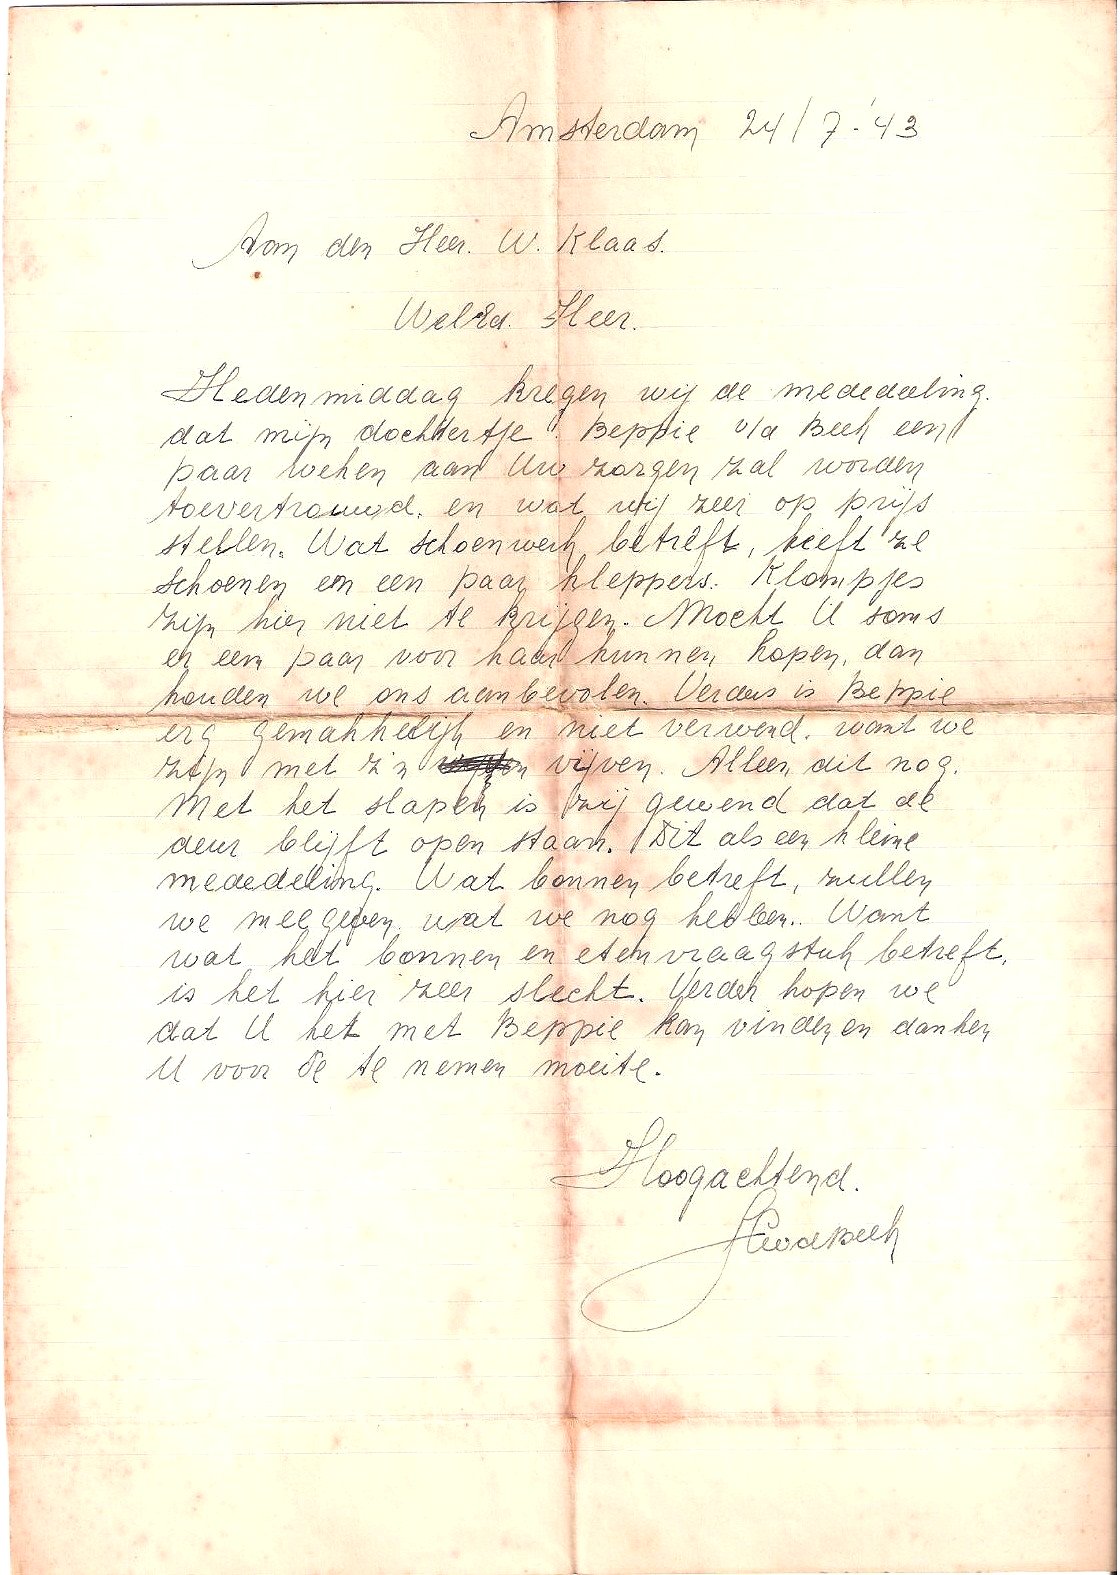 Amsterdam 24/7-'43
Aan den Heer. W. Klaas.
WelEd. Heer.
Hedenmiddag kregen wij de mededeeling.
dat mijn dochtertje. Beppie v/d Beek een
paar weken aan Uw zorgen zal worden
toevertrouwd. en wat wij zeer op prijs
stellen. Wat schoenwerk betreft, heeft ze
schoenen en een paar kleppers. Klompjes
zijn hier niet te krijgen. Mocht U soms
er een paar voor haar kunnen kopen, dan
houden we ons aanbevolen. Verders is Beppie
erg gemakkelijk en niet verwend. want we
zijn met z'n vijven. Alleen dit nog.
Met het slapen is zij gewend dat de
deur blijft open staan. Dit als een kleine
mededeling. Wat bonnen betreft, zullen
we meegeven wat we nog hebben. Want
wat het bonnen en etenvraagstuk betreft,
is het hier zeer slecht. Verder hopen we
dat U het met Beppie kan vinden en danken
U voor de te nemen moeite.
Hoogachtend.